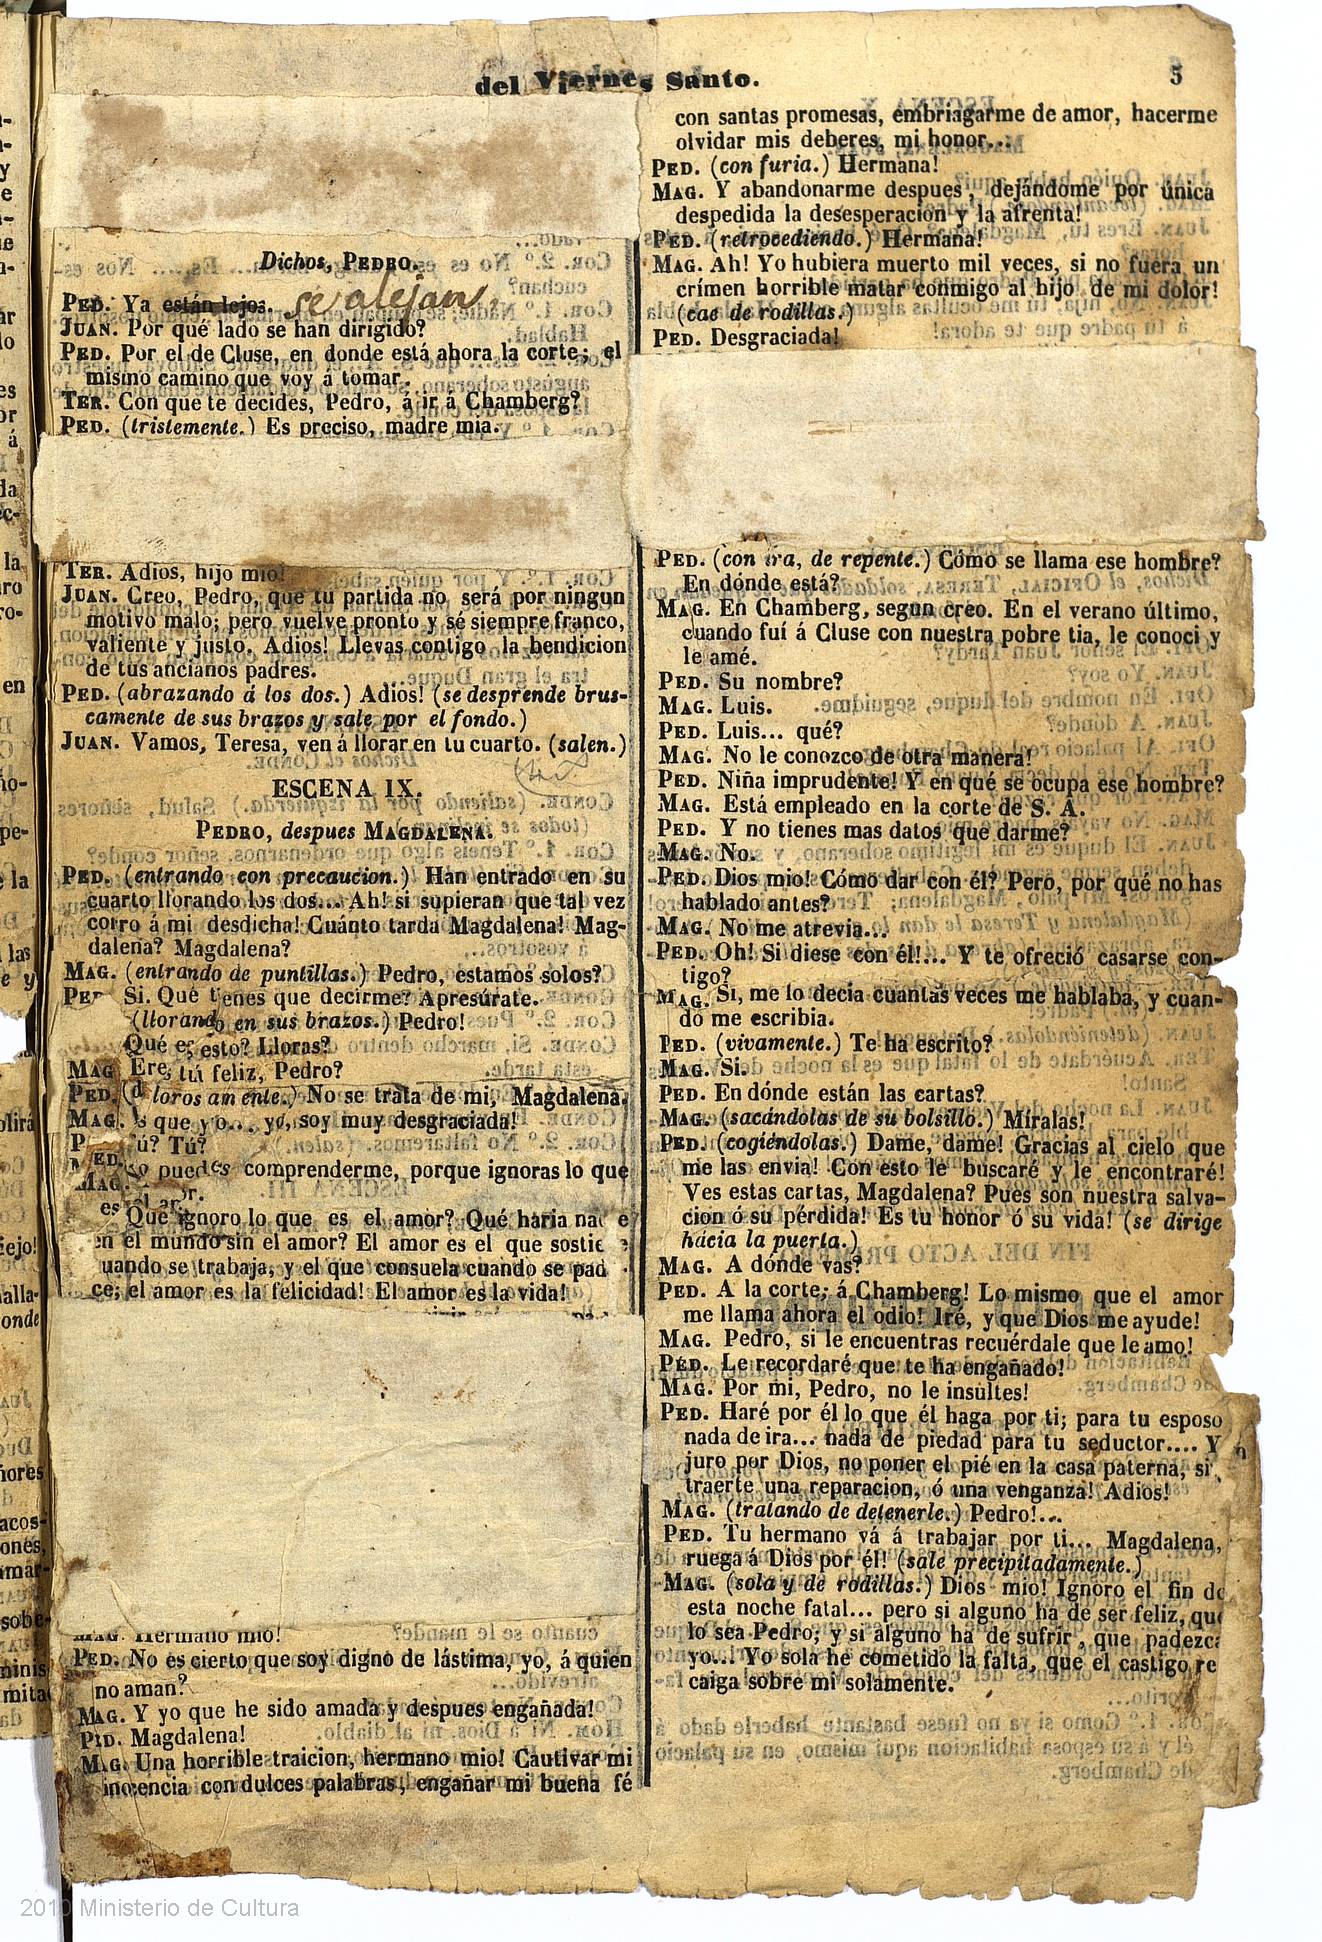 del Viernes Santo.
5
Dichos, PEDRO.
PED. Ya están lejos. se alejan.
JUAN. Por qué lado se han dirigido?
PED. Por el de Cluse, en donde está ahora la corte; el
mismo camino que voy á tomar.
TER. Con que te decides, Pedro, á ir á Chamberg?
PED. (tristemente.) Es preciso, madre mia.
TER. Adios, hijo mio!
JUAN. Creo, Pedro, que tu partida no será por ningun
motivo malo; pero vuelve pronto y sé siempre franco,
valiente y justo. Adios! Llevas contigo la bendicion
de tus ancianos padres.
PED. (abrazando á los dos.) Adios! (se desprende brus-
camente de sus brazos y sale por el fondo.)
JUAN. Vamos, Teresa, ven á llorar en tu cuarto. (salen.)
ESCENA IX.
PEDRO, despues MAGDALENA.
PED. (entrando con precaucion.) Han entrado en su
cuarto llorando los dos... Ah! si supieran que tal vez
corro á mi desdicha! Cuánto tarda Magdalena! Mag-
dalena? Magdalena?
MAG. (entrando de puntillas.) Pedro, estamos solos?
PED Si. Qué tienes que decirme? Apresúrate.
(llorando en sus brazos.) Pedro!
Qué es esto? Lloras?
MAG Eres tú feliz, Pedro?
PED. (dolorosamente.) No se trata de mi, Magdalena.
MAG. s que yo... yo, soy muy desgraciada!
PED. ú? Tú?
MAG. puedes comprenderme, porque ignoras lo que
es el amor.
Que ignoro lo que es el amor? Qué haria nadie
en el mundo sin el amor? El amor es el que sostie
uando se trabaja, y el que consuela cuando se pad
ce; el amor es la felicidad! El amor es la vida!
MAG. Hermano mio!
PED. No es cierto que soy digno de lástima, yo, á quien
no aman?
MAG. Y yo que he sido amada y despues engañada!
PED. Magdalena!
MAG. Una horrible traicion, hermano mio! Cautivar mi
inocencia con dulces palabras, engañar mi buena fé
con santas promesas, embriagarme de amor, hacerme
olvidar mis deberes, mi honor...
PED. (con furia.) Hermana!
MAG. Y abandonarme despues, dejándome por única
despedida la desesperacion y la afrenta!
PED. (retrocediendo.) Hermana!
MAG. Ah! Yo hubiera muerto mil veces, si no fuera un
crímen horrible matar conmigo al hijo de mi dolor!
(cae de rodillas.)
PED. Desgraciada!
PED. (con ira, de repente.) Cómo se llama ese hombre?
En dónde está?
MAG. En Chamberg, segun creo. En el verano último,
cuando fuí á Cluse con nuestra pobre tia, le conoci y
le amé.
PED. Su nombre?
MAG. Luis.
PED. Luis... qué?
MAG. No le conozco de otra manera!
PED. Niña imprudente! Y en qué se ocupa ese hombre?
MAG. Está empleado en la corte de S. A.
PED. Y no tienes mas datos que darme?
MAG. No.
PED. Dios mio! Cómo dar con él? Pero, por qué no has
hablado antes?
MAG. No me atrevia...
PED. Oh! Si diese con él!... Y te ofreció casarse con-
tigo?
MAG. Si, me lo decia cuantas veces me hablaba, y cuan-
do me escribia.
PED. (vivamente.) Te ha escrito?
MAG. Si.
PED. En dónde están las cartas?
MAG. (sacándolas de su bolsillo.) Míralas!
PED. (cogiéndolas.) Dame, dame! Gracias al cielo que
me las envia! Con esto le buscaré y le encontraré!
Ves estas cartas, Magdalena? Pues son nuestra salva-
cion ó su pérdida! Es tu honor ó su vida! (se dirige
hácia la puerta.)
MAG. A dónde vas?
PED. A la corte; á Chamberg! Lo mismo que el amor
me llama ahora el odio! Iré, y que Dios me ayude!
MAG. Pedro, si le encuentras recuérdale que le amo!
PED. Le recordaré que te ha engañado!
MAG. Por mi, Pedro, no le insultes!
PED. Haré por él lo que él haga por ti; para tu esposo
nada de ira... nada de piedad para tu seductor.... Y
juro por Dios, no poner el pié en la casa paterna, si
traerte una reparacion, ó una venganza! Adios!
MAG. (tratando de detenerle.) Pedro!...
PED. Tu hermano vá á trabajar por ti... Magdalena,
ruega á Dios por él! (sale precipitadamente.)
MAG. (sola y de rodillas.) Dios mio! Ignoro el fin de
esta noche fatal... pero si alguno ha de ser feliz, que
lo sea Pedro; y si alguno ha de sufrir, que padezca
yo... Yo sola he cometido la falta, que el castigo re
caiga sobre mi solamente.
2010 Ministerio de Cultura